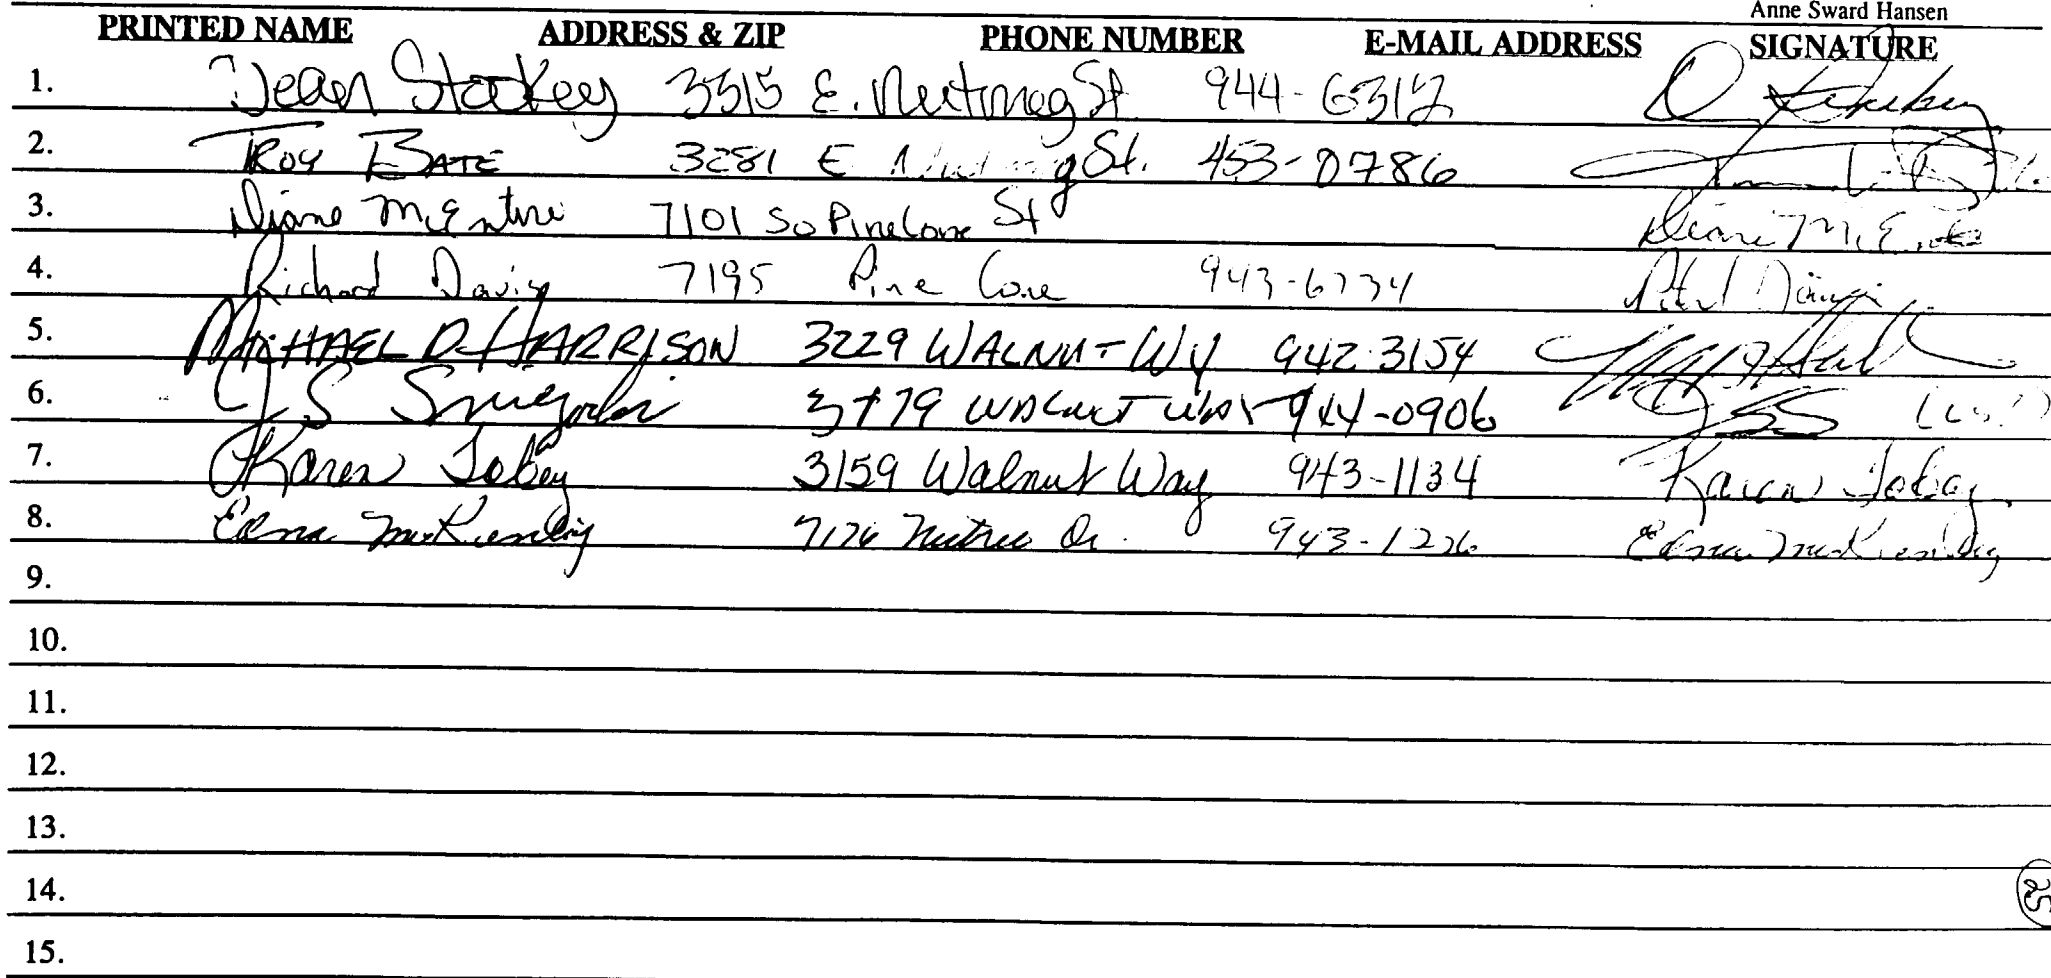 Anne Sward Hansen
PRINTED NAME ADDRESS & ZIP PHONE NUMBER E-MAIL ADDRESS SIGNATURE
1. Dean Stookey 3515 E. Nutmeg St. 944-6312
2. TROY BATE 3281 E Nutmeg St. 453-0786
3. Diane McEntire 7101 So Pinecone St Diane
4. Richard Davis 7195 Pine Cone 943-6734
5. MICHAEL D. HARRISON 3229 WALNUT WY 942-3154
6. J S WALNUT WAY 944-0906
7. Karen Tobey 3159 Walnut Way 943-1134 Karen Tobey
8. Edna Dr. 943-1226 Edna
9.
10.
11.
12.
13.
14.
25
15.